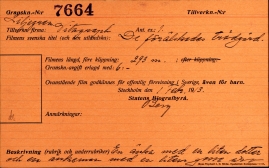 Granskn.-Nr 7664 Tillverkn.-Nr
Tillverkande firma: Vitagraph Ant. r.: 1.
Filmens svenska titel (och den utländska): De föräldralösas Trädgård.
Filmens längd, före klippning: 293 m. efter klippning:
Granskn.-avgift erlagd med: 6:-
Ovanstående film godkännes till offentlig förevisning i Sverige, även för barn.
Stockholm den 1 febr. 1913.
Statens Biografbyrå.
Anmärkningar:
Beskrivning (rubrik och underrubriker) En änka med en liten dotter
och en änkeman med en liten gosse